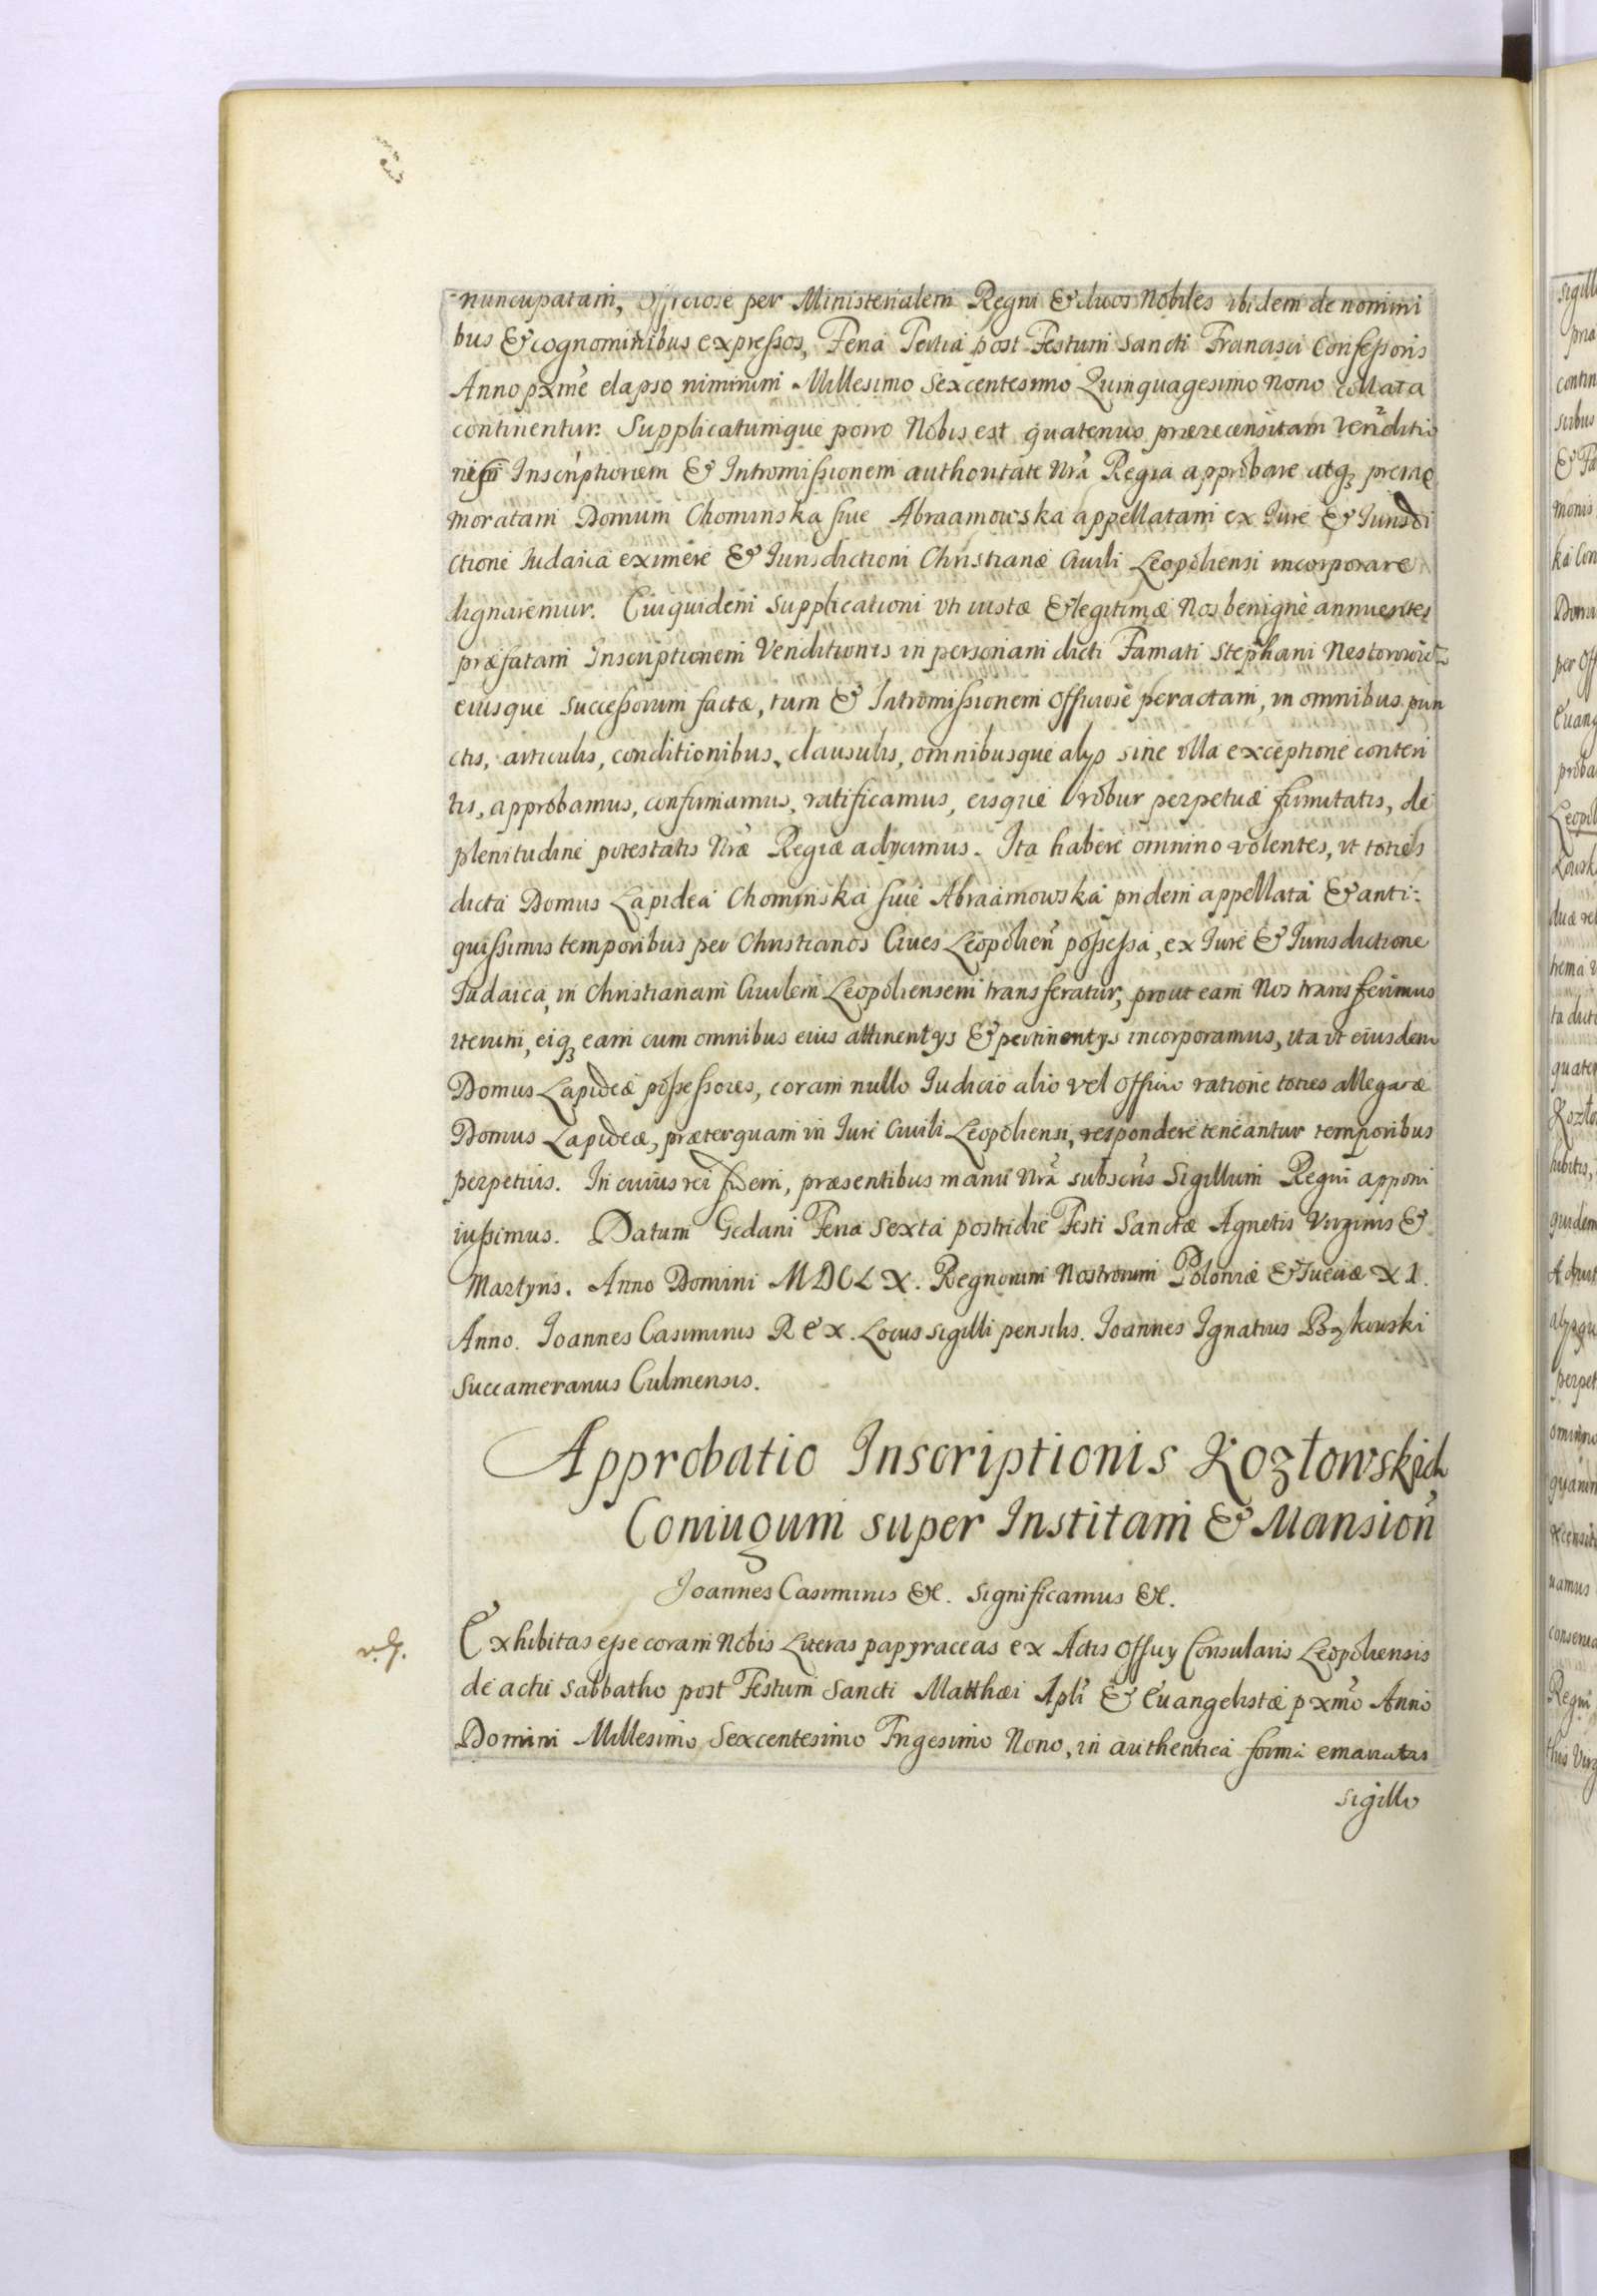 nuncupatam, Officiose per Ministerialem Regni & duos Nobiles ibidem de nomini
bus & cognominibus expressos, Feria Tertia post Festum Sancti Francisci Confessoris
Anno pxme elapso nimirum Millesimo Sexcentesimo Quinquagesimo Nono collata
continentur. Supplicatumque porro Nobis est quatenus prærecensitam Venditio
nis Inscriptionem & Intromissionem authoritate Nrã Regia approbare atq3 præme
moratam Domum Chominska siue Abraamowska appellatam ex Iure & Iurisdi
ctione Iudaica eximere & Iurisdictioni Christianæ Ciuili Leopoliensi incorporare
dignaremur. Cui quidem supplicationi vti iustæ & legitimæ Nos benignè annuentes
præfatam Inscriptionem Venditionis in personam dicti Famati Stephani Nestorowicz
eiusque Successorum factæ, tum & Intromissionem officiose peractam, in omnibus pun
ctis, articulis, conditionibus, clausulis, omnibusque alys sine vlla exceptione conten
tis, approbamus, confirmamus, ratificamus, eisque robur perpetuæ firmitatis, de
plenitudine potestatis Nræ Regiæ adycimus. Ita habere omnino volentes, vt toties
dicta Domus Lapidea Chominska siue Abraamowska pridem appellata & anti:
quissimis temporibus per Christianos Ciues Leopolien̄ possessa, ex Iure & Iurisdictione
Iudaica, in Christianam Ciuilem Leopoliensem transferatur, prout eam Nos transferimus
iterum, eiq3 eam cum omnibus eius attinentys & pertinentys incorporamus, ita vt eiusdem
Domus Lapideæ possessores, coram nullo Iudicio alio vel officio ratione toties allegatæ
Domus Lapideæ, præterquam in Iure Ciuili Leopoliensi, respondere teneantur temporibus
perpetuis. In cuius rei fidem, præsentibus manu Nrã subscris Sigillum Regni apponi
iussimus. Datum Gedani Feria Sexta postridie Festi Sanctæ Agnetis Virginis &
Martyris. Anno Domini MDCLX. Regnorum Nostrorum Poloniæ & Sueciæ XI.
Anno. Ioannes Casimirus Rex. Locus sigilli pensilis. Ioannes Ignatius Bąkowski
Succamerarius Culmensis.
Approbatio Inscriptionis Kozłowskich
Coniugum super Institam & Mansion̄
Joannes Casimirus &c. Significamus &c.
Exhibitas esse coram Nobis Literas papyraceas ex Actis Officy Consularis Leopoliensis
de actu Sabbatho post Festum Sancti Matthæi Apli & Euangelistæ pxmo Anno
Domini Millesimo Sexcentesimo Trigesimo Nono, in authentica forma emanatas
sigillo